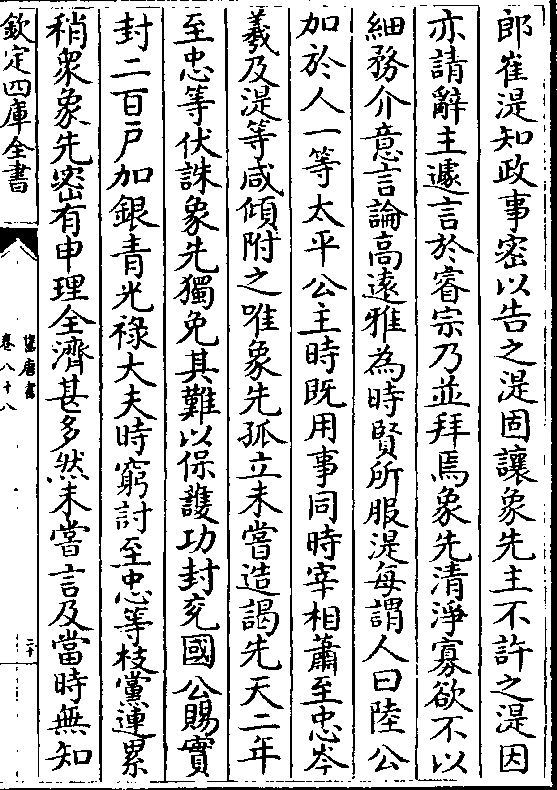 郎崔湜知政事密以告之湜固讓象先主不許之湜因
亦請辭主遽言於睿宗乃並拜焉象先清淨寡欲不以
細務介意言論高遠雅為時賢所服湜每謂人曰陸公
加於人一等太平公主時既用事同時宰相蕭至忠岑
羲及湜等咸傾附之唯象先孤立未嘗造謁先天二年
至忠等伏誅象先獨免其難以保護功封兖國公賜實
封二百戶加銀青光祿大夫時窮討至忠等枝黨連累
稍衆象先密有申理全濟甚多然未嘗言及當時無知
欽定四庫全書
舊唐書
卷八十八
二十